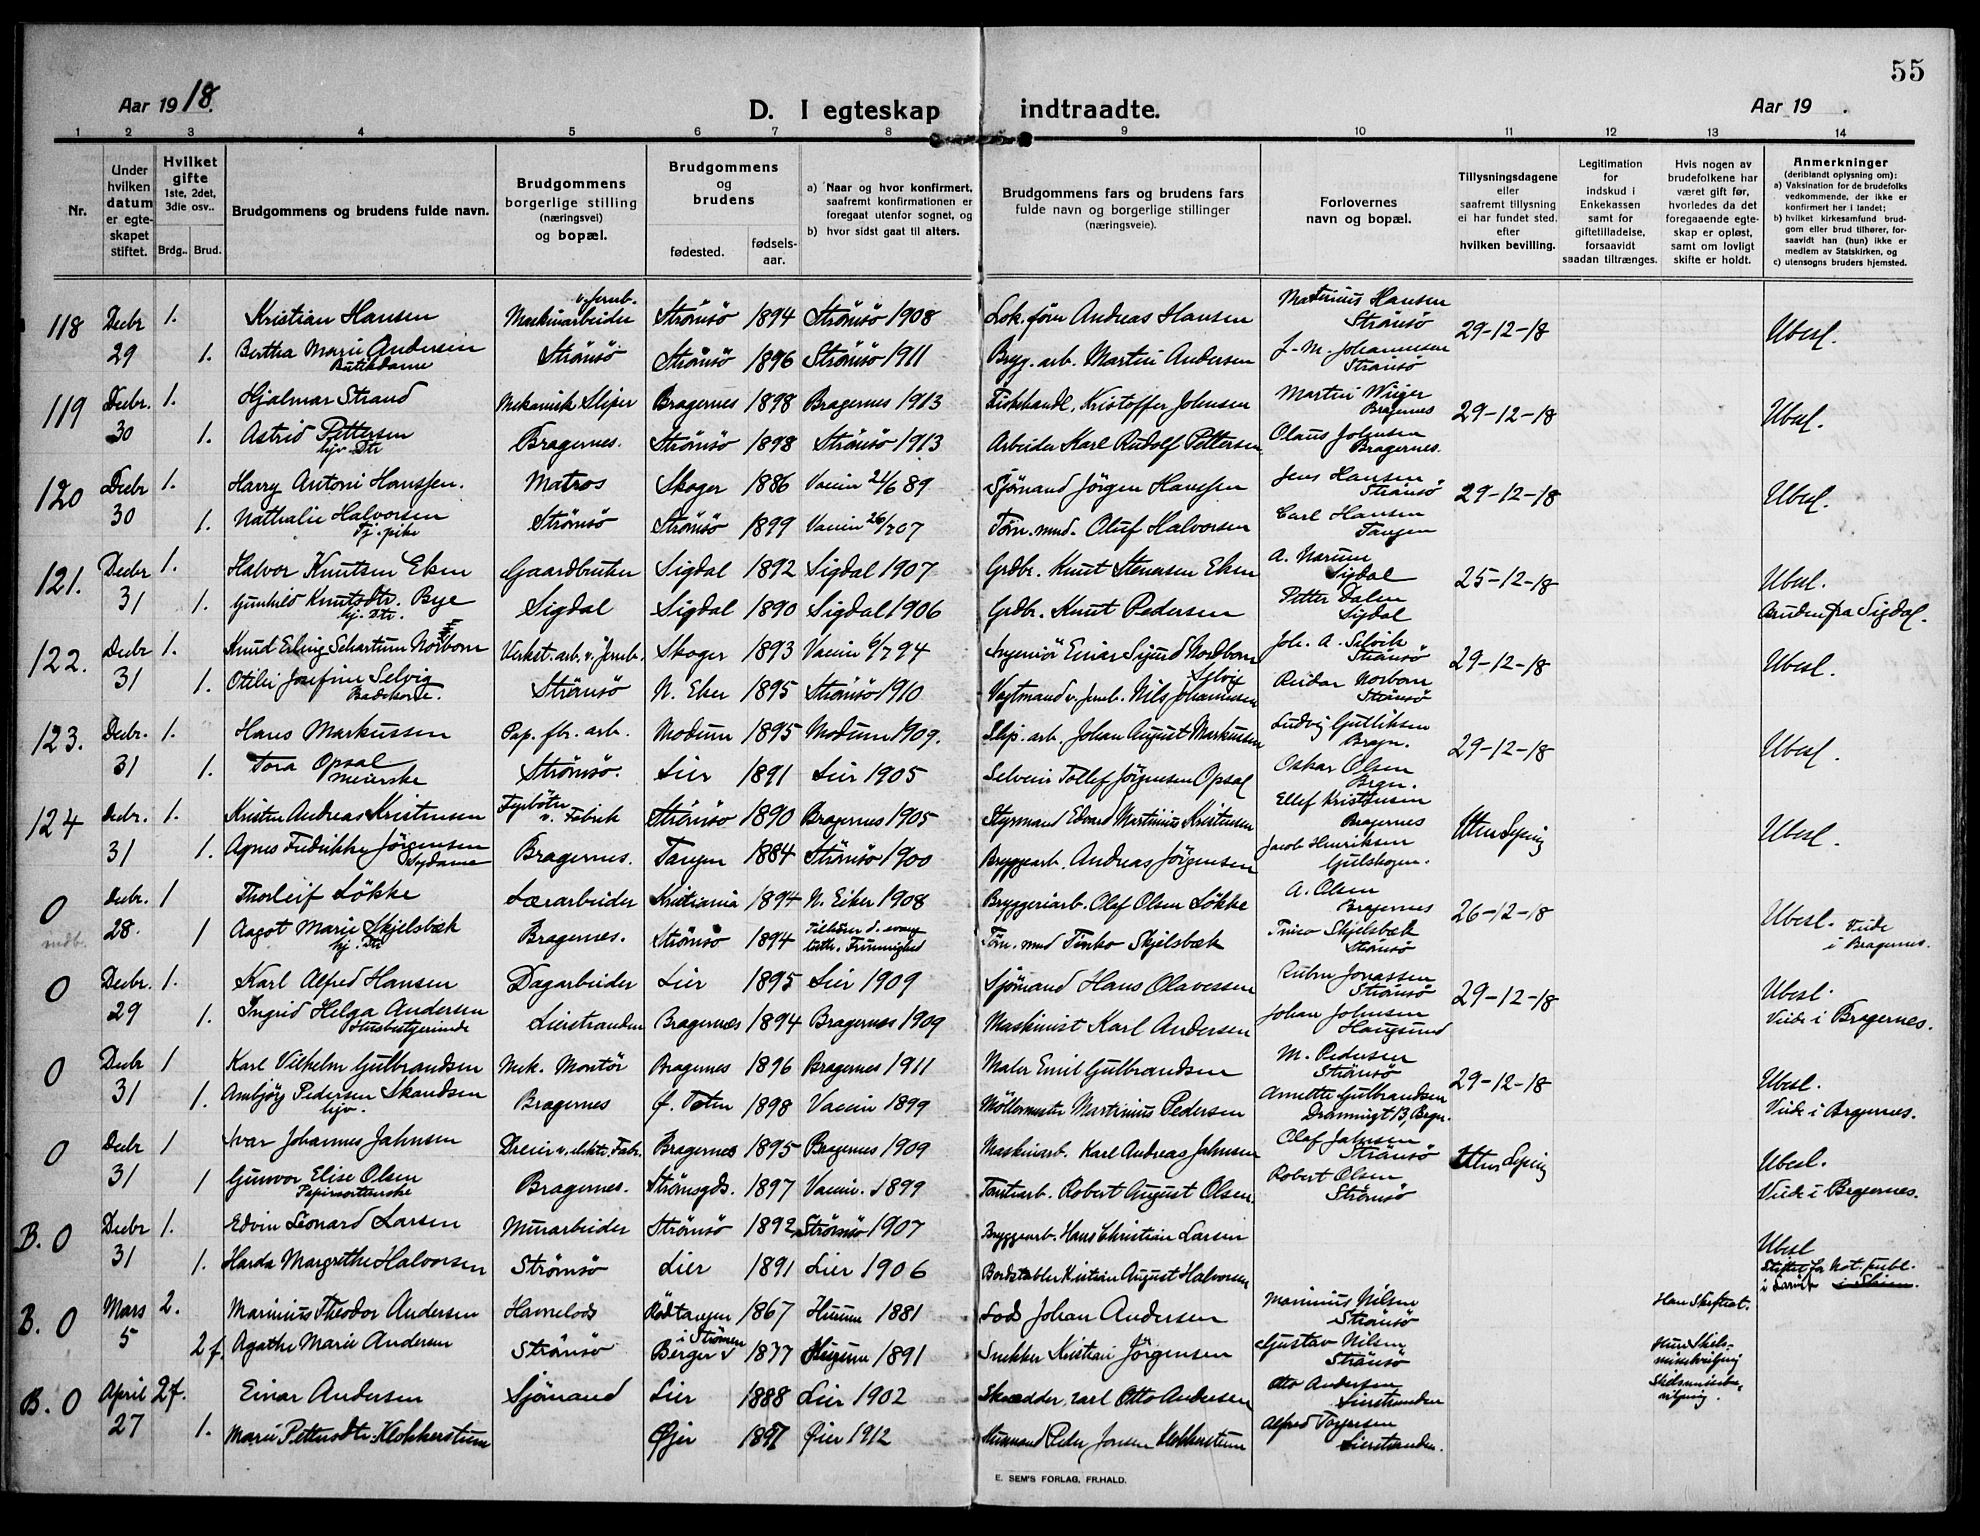 55
Aar 1918.
D. I egteskap indtraadte.
Aar 19 .
1 2 3 4 5 6 7 8 9 10 11 12 13 14
Nr.
Under hvilken datum er egteskapet stiftet.
Hvilket gifte 1ste, 2det, 3die osv..
Brdg.. Brud.
Brudgommens og brudens fulde navn.
Brudgommens borgerlige stilling (næringsvei) og bopæl.
Brudgommens og brudens
fødested. fødsels-aar.
a) Naar og hvor konfirmert, saafremt konfirmationen er foregaat utenfor sognet, og
b) hvor sidst gaat til alters.
Brudgommens fars og brudens fars fulde navn og borgerlige stillinger (næringsveie).
Forlovernes navn og bopæl.
Tillysningsdagene eller saafremt tillysning ei har fundet sted, efter hvilken bevilling.
Legitimation for indskud i Enkekassen samt for giftetilladelse, forsaavidt saadan tiltrænges.
Hvis nogen av brudefolkene har været gift før, hvorledes da det foregaaende egteskap er opløst, samt om lovligt skifte er holdt.
Anmerkninger (deriblandt oplysning om):
a) Vaksination for de brudefolks vedkommende, der ikke er konfirmert her i landet;
b) hvilket kirkesamfund brudgom eller brud tilhører, forsaavidt han (hun) ikke er medlem av Statskirken, og
c) utensogns bruders hjemsted.
118 Decbr 1. Kristian Hansen Maskinarbeider v. Jernb. Strömsö 1894 Strömsö 1908 Lok. förer Andreas Hansen Martinius Hansen Strömsö 29-12-18 Ubesl.
29 1. Bertha Marie Andersen Butikdame Strömsö Strömsö 1896 Strömsö 1911 Bryg. arb. Martin Andersen J. M. Johannesen Strömsö
119 Decbr. 1. Hjalmar Strand Mekanisk Sliper Bragernes 1898 Bragernes 1913 Fiskehandl. Kristoffer Johnsen Martin Wiiger Bragernes 29-12-18 Ubesl.
30 1. Astrid Pettersen hjv. Dtr Bragernes. Strömsö 1898 Strömsö 1913 Arbeider Karl Rudolf Pettersen Olaus Johnsen Bragernes.
120 Decbr 1. Harry Antoni Hanssen. Matros Skoger 1886 Vaccin 21/6 89 Sjömand Jörgen Hanssen Jens Hansen Strömsö 29-12-18 Ubesl.
30 1. Nathalie Halvorsen Tj. pike Strömsö Strömsö 1899 Vaccin 26/7 07 Törn. mnd. Oluf Halvorsen Carl Hansen Tangen
121. Decbr 1. Halvor Knutsen Eken Gaardbruker Sigdal 1892 Sigdal 1907 Grdbr. Knut Stenersen Eken A. Narum Sigdal 25-12-18 Ubesl.
31 1. Gunhild Knutsdtr. Bye hj. Dtr. Sigdal Sigdal 1890 Sigdal 1906 Grdbr. Knut Pedersen Petter Dalen Sigdal Bruden fra Sigdal.
122. Decbr 1. Knud Erling Schartum Norbom Verkst. arb. v. Jernb. Skoger 1893 Vaccin 6/7 94 Ingeniör Einar Sigurd Nordbom Joh. A. Selvik Strömsö 29-12-18 Ubesl.
31 1. Otilie Josefine Selvig Strömsö N. Eker 1895 Strömsö 1910 Vagtmand v. Jernb. Nils Johannessen Selvig Reidar Norbom Strömsö
123. Decbr. 1. Hans Markussen Pap. fbr. arb. Modum 1895 Modum 1909. Slip. arb. Johan August Markussen Ludvig Gutliksen Bragn. 29-12-18 Ubesl.
31 1. Tora Opsal Meierske Strömsö. Lier 1891 Lier 1905 Selveier Tollef Jörgensen Opsal Oskar Olsen Bragn.
124 Decbr. 1. Kristen Andreas Kristensen Fyrböter v. Fabrik Strömsö 1890 Bragernes 1905 Styrmand Edvard Martinius Kristensen Ellef Kristensen Bragernes Uten Lysing Ubesl.
31 1. Agnes Fredrikke Jörgensen Sydame Bragernes. Tangen 1884 Strömsö 1900 Bryggearb. Andreas Jörgensen Jacob Henriksen Gulskogen.
0 Decbr. 1 Thorleif Lökke Lærarbeider Kristiania 1894 N. Eiker 1908 Bryggeriarb. Olaf Olsen Lökke A. Olsen Bragernes 26-12-18 Ubesl. Viede i Bragernes.
indb. 28. 1 Aagot Marie Skjelsbæk hj. Dtr Bragernes. Strömsö 1894 Tilhörer d. evang luth. Frimenighed Törn. mnd Timko Skjelsbæk Skjelsbæk Strömsö
0 Decbr. 1. Karl Alfred Hansen Dagarbeider Lier 1895 Lier 1909 Sjömand Hans Olavessen Ruben Jonassen Strömsö 29-12-18 Ubesl.
29 1. Ingrid Helga Andersen Husbestyrerinde Lierstranden Bragernes 1894 Bragernes 1909 Maskinist Karl Andersen Johan Johnsen Haugsund Viede i Bragernes.
0 Decbr 1 Karl Vilhelm Gulbrandsen Mek. Montör Bragernes 1896 Bragernes 1911 Maler Emil Gulbrandsen M. Pedersen Strömsö 29-12-18 Ubesl.
31 1. Ambjörg Pedersen Skandsen hjv. Bragernes Ö. Toten 1898 Vaccin 1899 Möllemester Martinius Pedersen Annette Gulbrandsen Dronningt 13, Bragn. Viede i Bragernes.
0 Decbr 1 Ivar Johannes Jahnsen Dreier v. elektr. Fabr. Bragernes 1895 Bragernes 1909 Maskinarb. Karl Andreas Jahnsen Olaf Jahnsen Strömsö Uten Lysing Ubesl.
31 1 Gunvor Elise Olsen Papirsorterske Bragernes. Strömsgds. 1897 Vaccin. 1899 Tomtearb. Robert August Olsen Robert Olsen Strömsö Viede i Bragernes.
B. 0 Decbr 1. Edvin Leonard Larsen Murarbeider Strömsö 1892 Strömsö 1907 Bryggearb. Hans Christian Larsen Ubesl
31 1. Harda Margrethe Halvorsen Strömsö Lier 1891 Lier 1906 Bordstabler Kristian August Halvorsen Stiftet for Not. publ. i Larvik i Skien.
B. 0 Mars 2. Marinius Theodor Andersen Havnelods Rödtangen 1867 Hurum 1881 Lods Johan Andersen Marinius Nilsen Strömsö Han Skifteat.
5 2 f. Agathe Marie Andersen Strömsö Berger i Strömm 1877 Hurum 1891 Snekker Kristian Jörgensen Gustav Nilsen Strömsö Hun Skilsmissebevilgning
B. 0 April 2 f. Einar Andersen Sjömand Lier 1888 Lier 1902 Skrædder Carl Otto Andersen Otto Andersen Lierstranden Skilsmissebevilgning.
27 1. Marie Pettersdtr. Klokkerstuen Øier 1897 Øier 1912 Husmand Peder Jonsen Klokkerstuen Alfred Torgersen Lierstranden.
E. SEM'S FORLAG, FR.HALD.